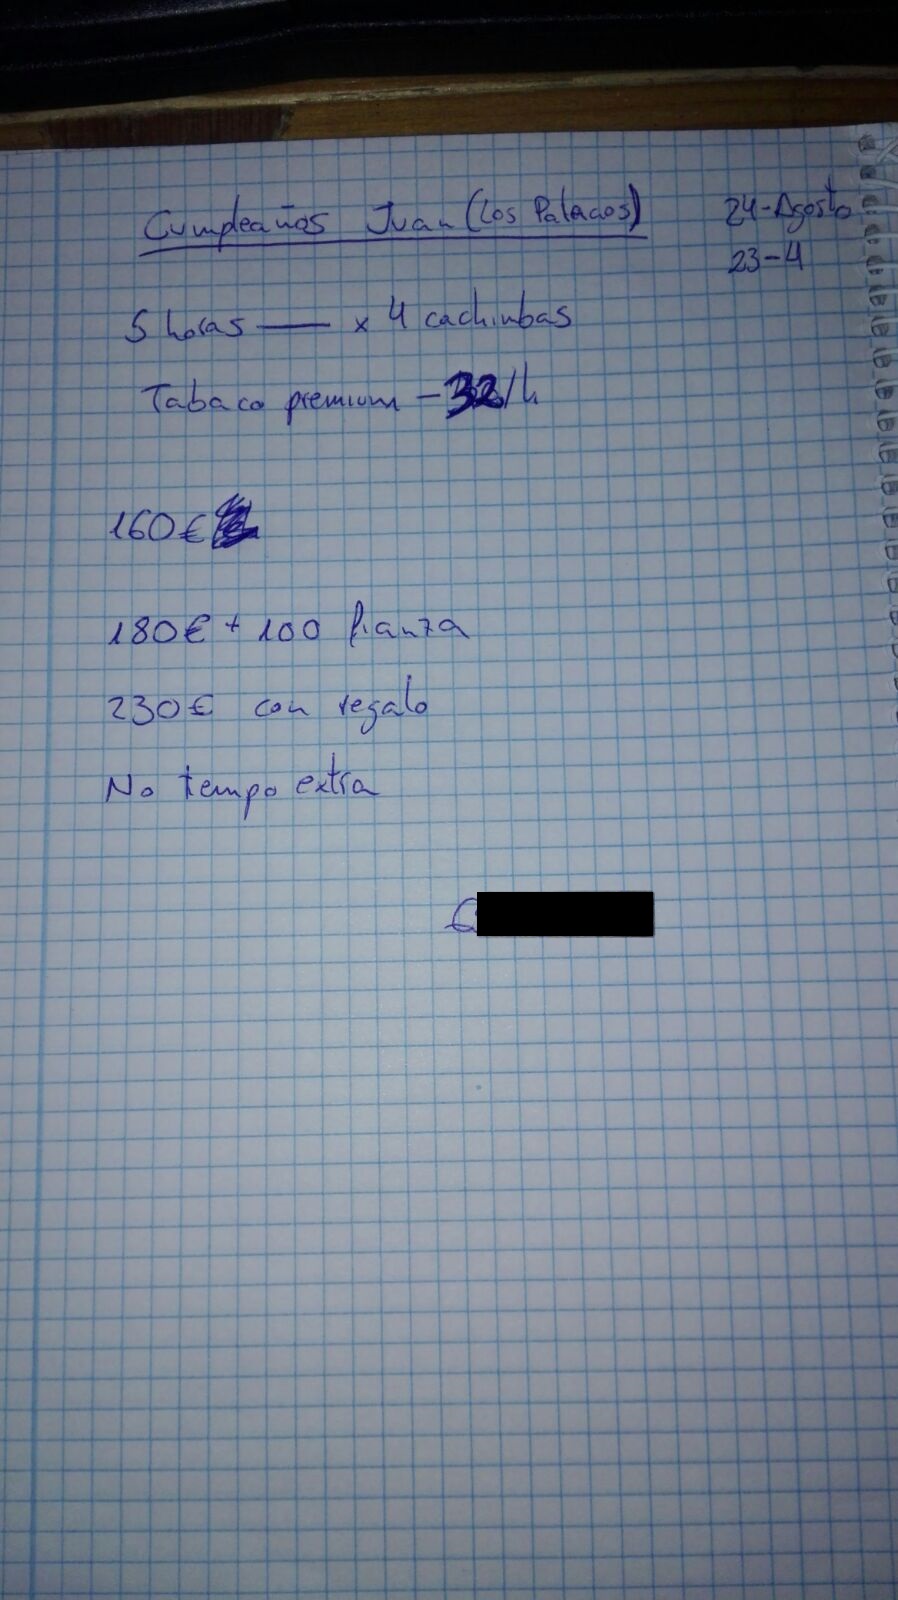 Cumpleaños Juan (Los Palacios)
24-Agosto
23-4
5 horas — x 4 cachimbas
Tabaco premium - 32/h
160€
180€ + 100 fianza
230€ con regalo
No tiempo extra